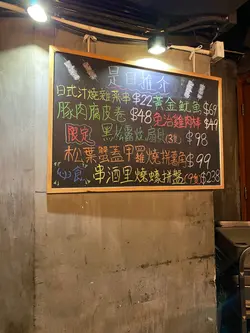 是日推介
日式汁燒雞蔥串 $22 黃金魷魚 $69
豚肉腐皮卷 $48 免治雞肉棒 $49
限定 黑松露蚊扇貝(3隻) $98
松葉蟹蓋甲羅燒拼萬角 $99
必食 串酒里燒蠔拼盤(9隻) $238